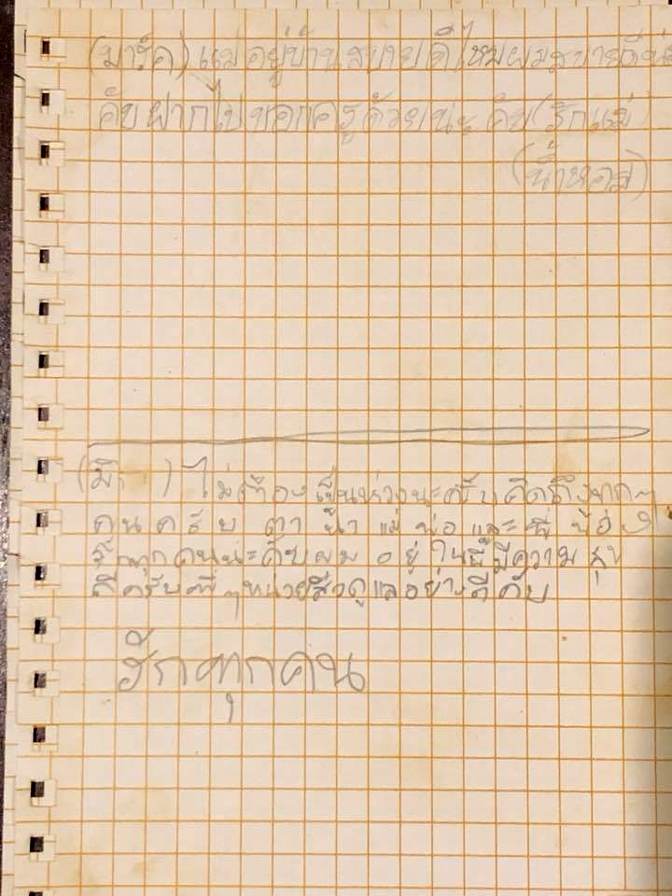 (มาร์ค) แม่อยู่บ้านสบายดีไหมผมสบายดีน่ะ
คับฝากไปบอกครูด้วยน่ะ คับ(รักแม่)
(น้ำหอส)
(มิ ) ไม่ต้องเป็นห่วงนะครับ คิดถึงทุกๆ
คนครับ ตา น้า แม่ พ่อ และ พี่ น้อง
รักทุกคนน่ะคับผม อยู่ ในนี้ มีความ สุข
ดีครับพี่ๆหน่วยซีลดูแลอย่างดี คับ
รักทุกคน